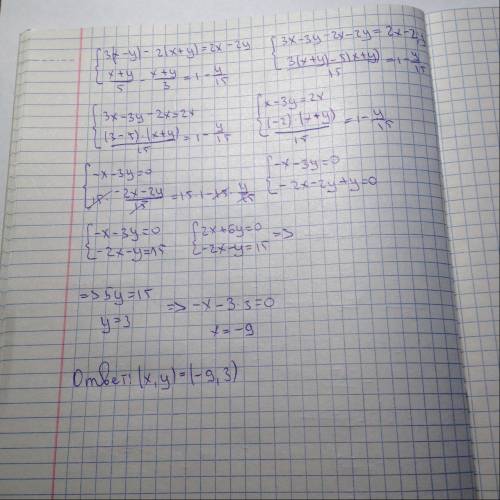 {3(x-y)-2(x+y)=2x-2y
{x+y/5 - x+y/3 = 1 - y/15
{3x-3y-2x-2y=2x-2y
{3(x+y)-5(x+y)/15 = 1 - y/15
{3x-3y-2x=2x
{(3-5)·(x+y)/15 = 1 - y/15
{x-3y=2x
{(-2)·(x+y)/15 = 1 - y/15
{-x-3y=0
{15· -2x-2y/15 = 15·1-15· y/15
{-x-3y=0
{-2x-2y+y=0
{-x-3y=0
{-2x-y=15
{2x+6y=0
{-2x-y=15 =>
=> 5y=15
y=3
=> -x-3·3=0
x=-9
Ответ: (x,y)=(-9,3)